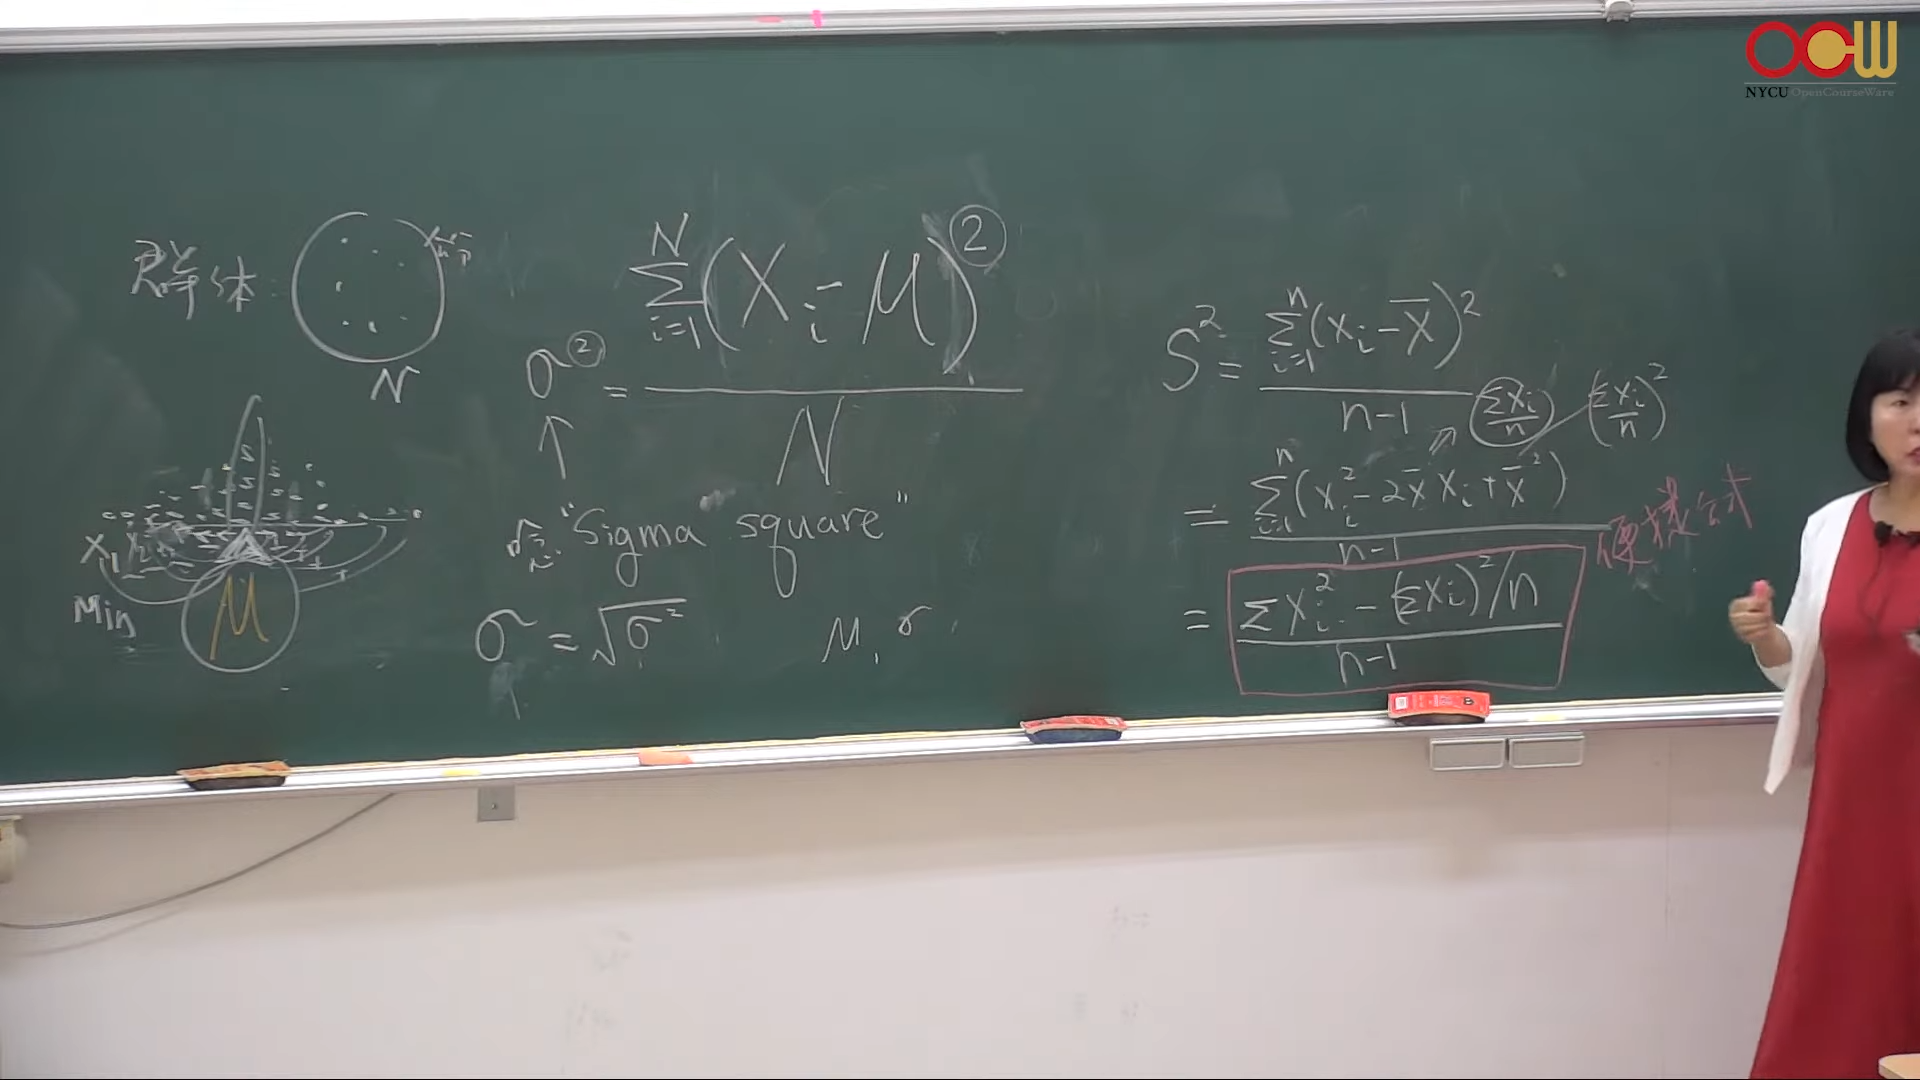 OCW
NYCU OpenCourseWare
群体:
N
Min
μ
σ² = \frac{\sum_{i=1}^{N}(X_i - μ)^2}{N}
"Sigma square"
σ = √σ²
μ, σ
S² = \frac{\sum_{i=1}^{n}(x_i - \overline{X})^2}{n-1}
\frac{\sum x_i}{n} \left(\frac{\sum x_i}{n}\right)^2
= \frac{\sum_{i=1}^{n}(x_i^2 - 2\overline{x}x_i + \overline{x}^2)}{n-1}
= \frac{\sum x_i^2 - (\sum x_i)^2/n}{n-1}
便捷公式